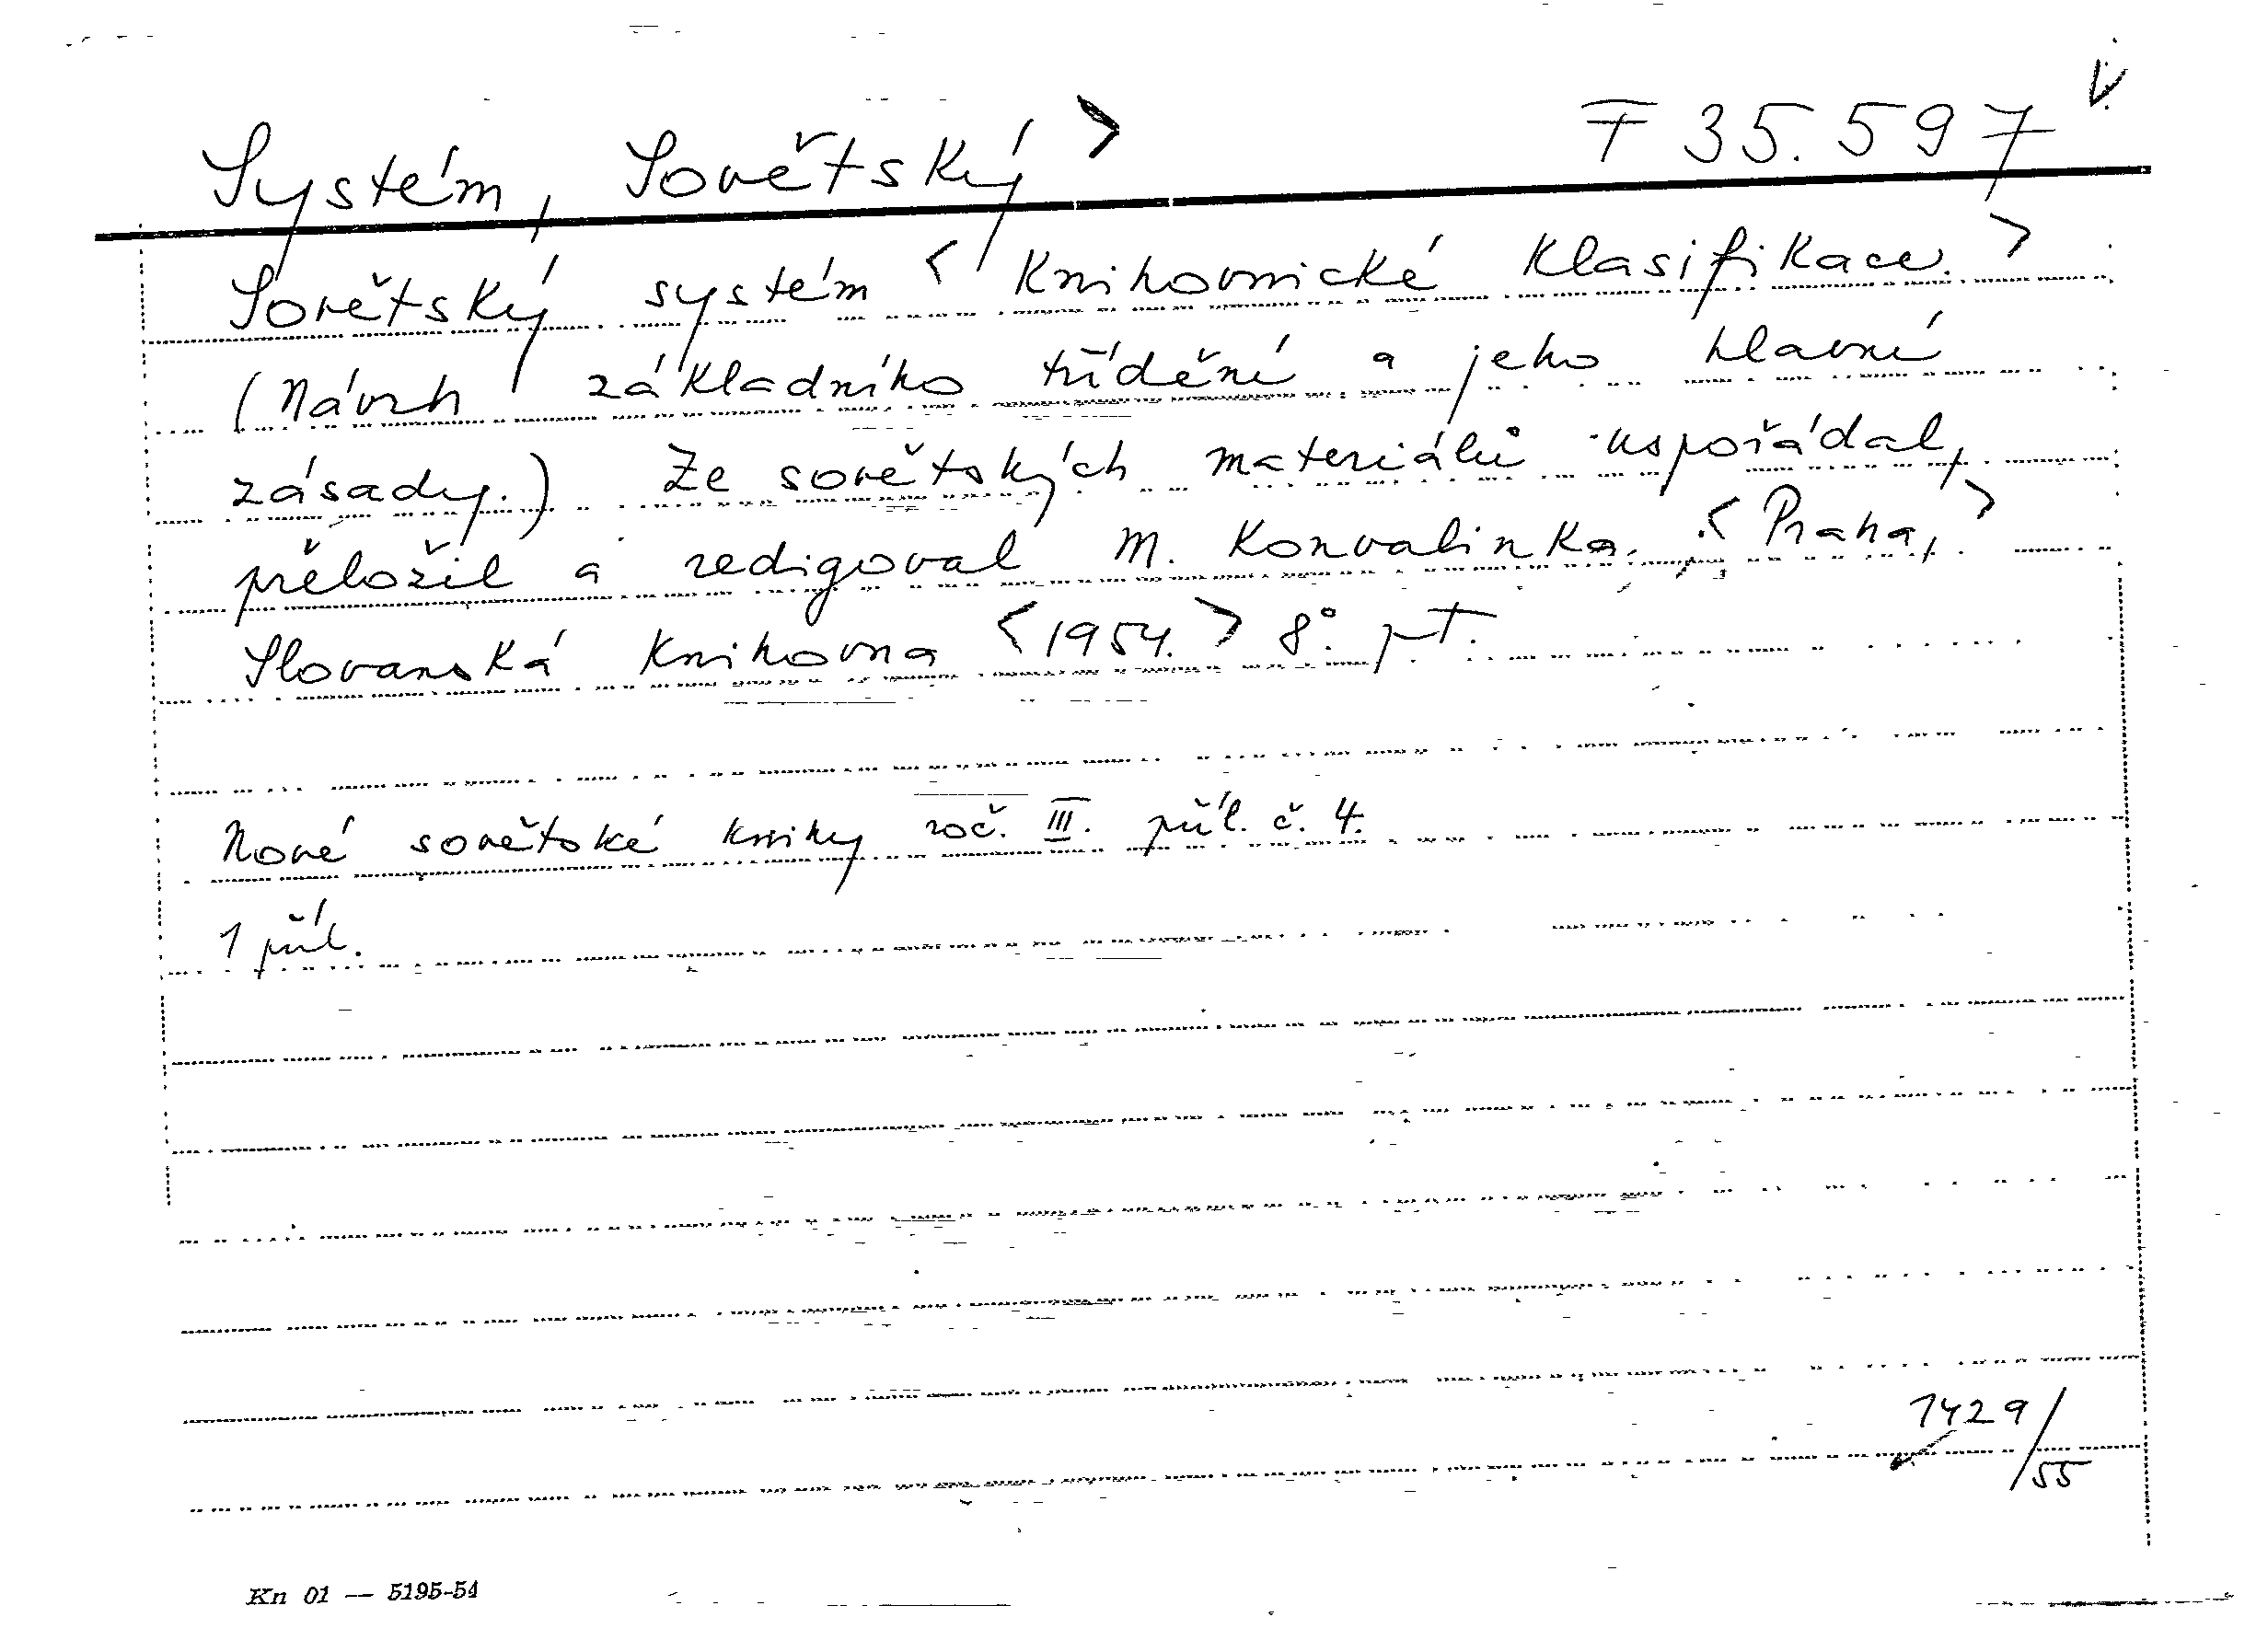 Systém, Sovětský > F 35.597 V.
Sovětský systém < knihovnické klasifikace. >
(Návrh základního třídění a jeho hlavní
zásady.) Ze sovětských materiálů uspořádal,
přeložil a redigoval M. Konvalinka. < Praha, >
Slovanská knihovna < 1954. > 8°. pT.
Nové sovětské knihy roč. III. příl. č. 4.
1 příl.
1429/55
Kn 01 — 5195-54